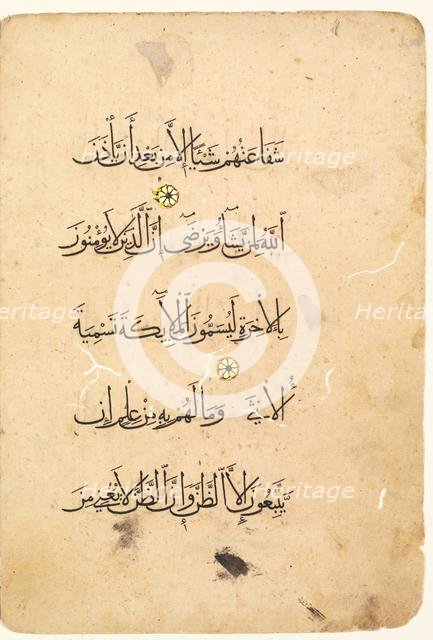 شَفَاعَتُهُمْ شَيْئًا إِلَّا مِنْ بَعْدِ أَنْ يَأْذَنَ
اللَّهُ لِمَنْ يَشَاءُ وَيَرْضَى إِنَّ الَّذِينَ لَا يُؤْمِنُونَ
بِالْآخِرَةِ لَيُسَمُّونَ الْمَلَائِكَةَ تَسْمِيَةَ
الْأُنْثَى وَمَا لَهُمْ بِهِ مِنْ عِلْمٍ إِنْ
يَتَّبِعُونَ إِلَّا الظَّنَّ وَإِنَّ الظَّنَّ لَا يُغْنِي مِنَ
Heritage
Heritage
Heritage
Heritage
Heritage
Heritage